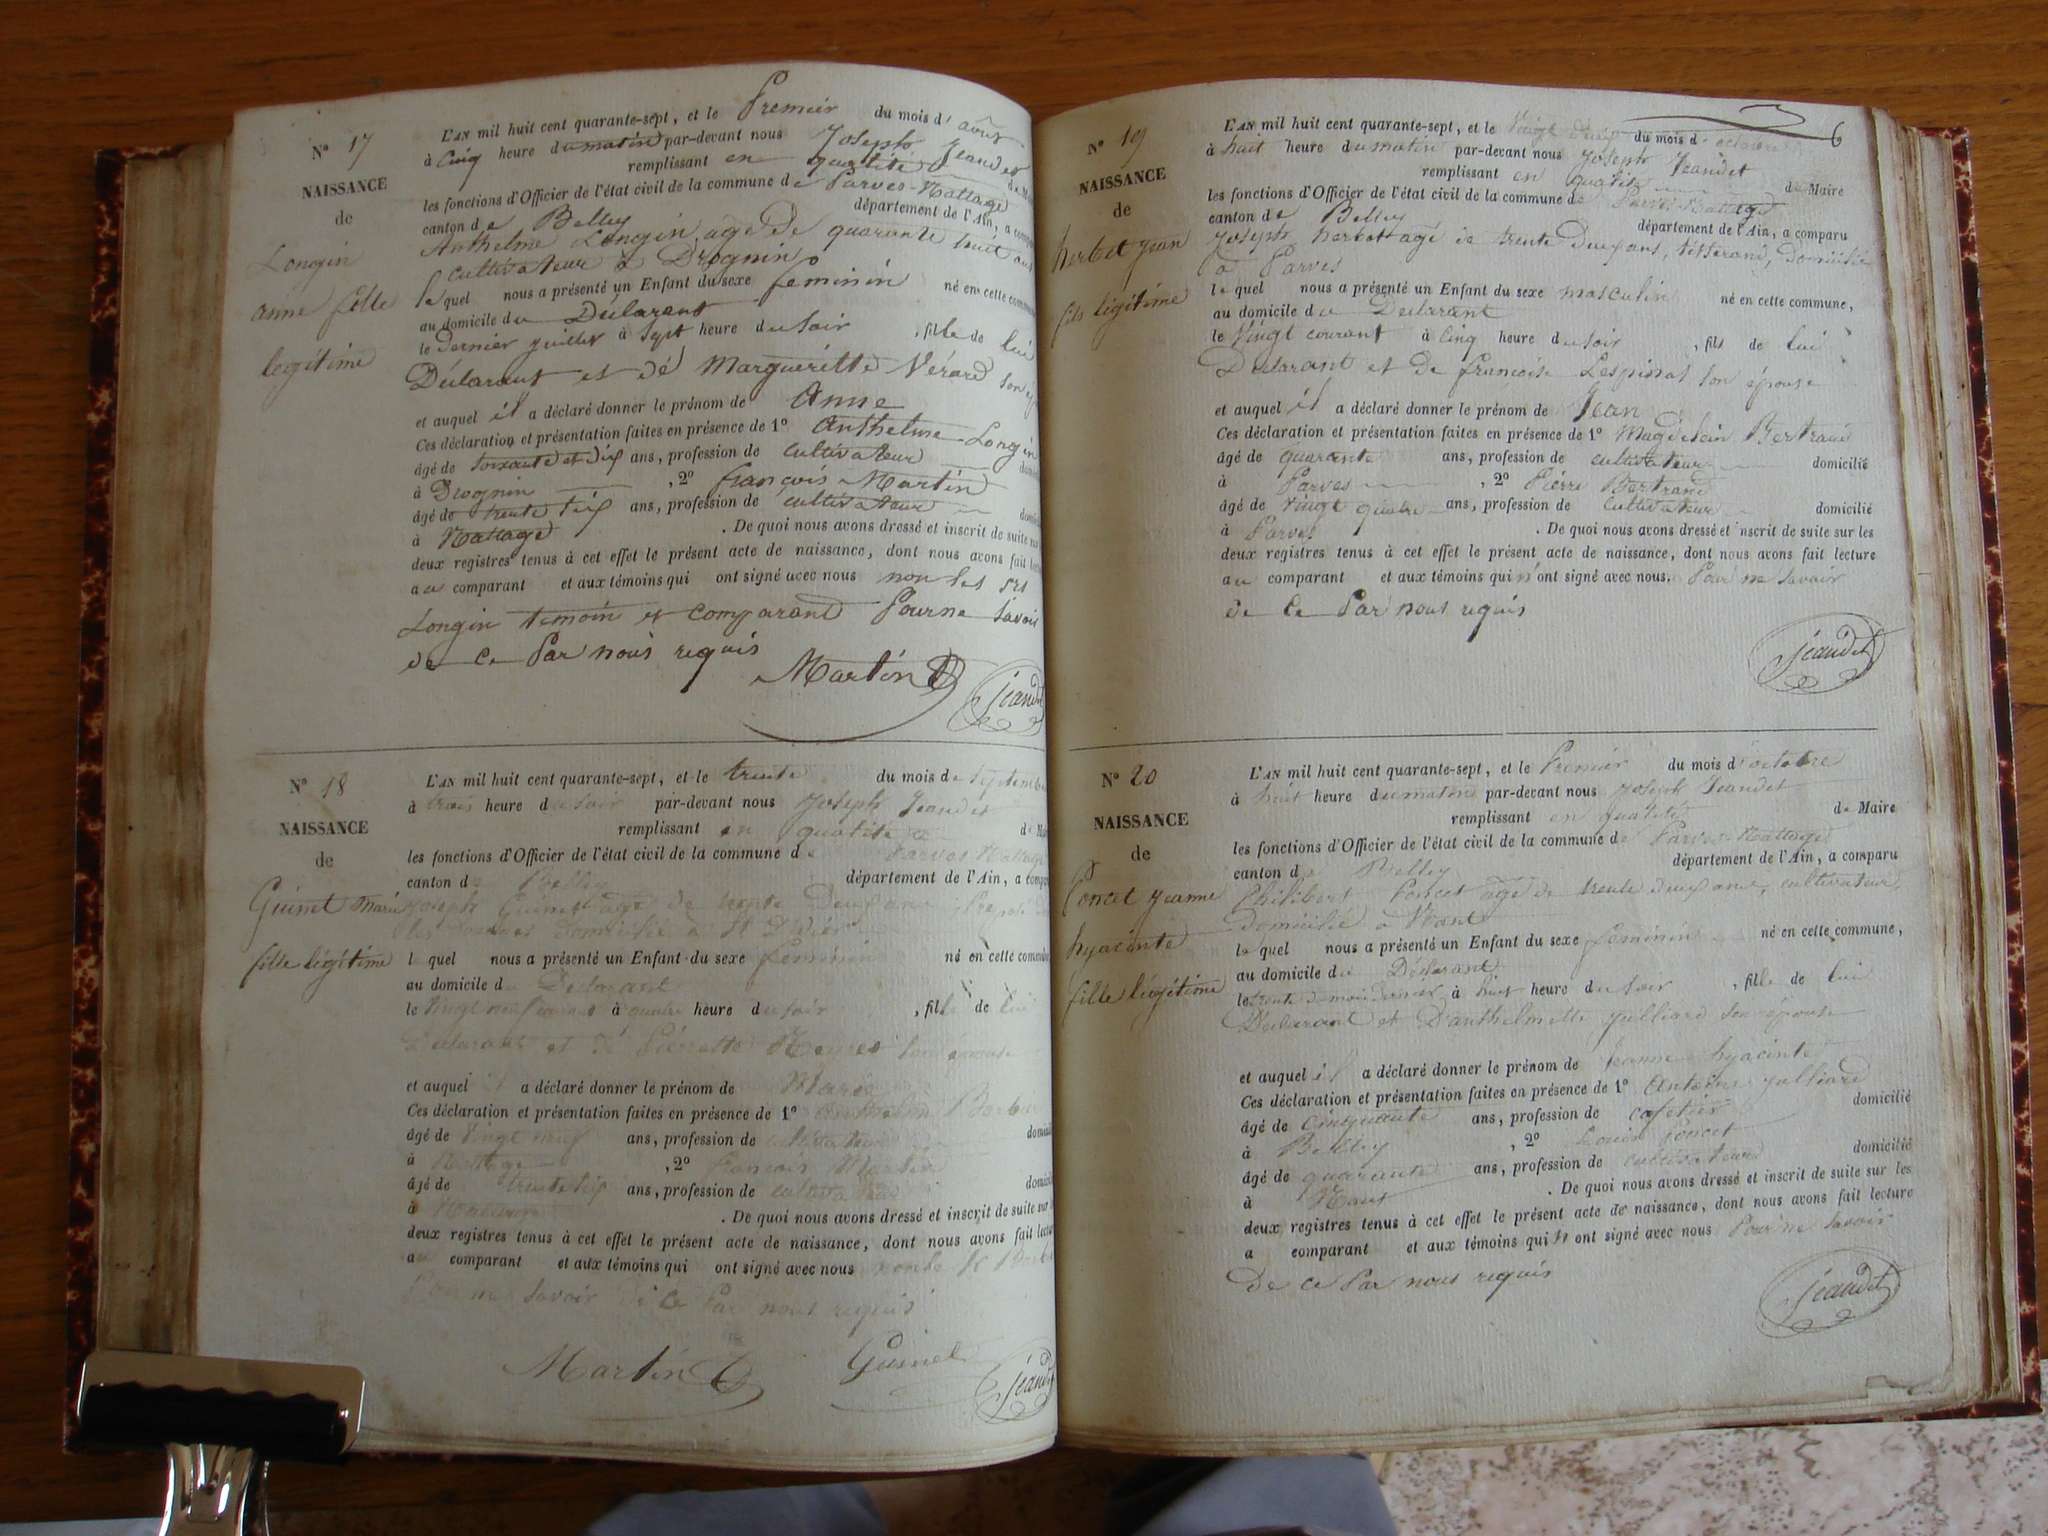 N° 17
NAISSANCE
de
Longin
anne fille
legitime
L'AN mil huit cent quarante-sept, et le Premier du mois d'août
à cinq heure du matin par-devant nous Joseph Jeandet
remplissant en qualité de
les fonctions d'Officier de l'état civil de la commune de Parves-Nattage
canton de Belley département de l'Ain, a
Anthelme Longin agé de quarante huit ans
cultivateur à Drognin
le quel nous a présenté un Enfant du sexe feminin né en cette
au domicile du Déclarant
le dernier juillet à sept heure du soir , fille de lui
Déclarant et dé Margueritte Vérard son
et auquel il a déclaré donner le prénom de Anne
Ces déclaration et présentation faites en présence de 1° Anthelme Longin
âgé de soixante et dix ans, profession de cultivateur
à Drognin , 2° françois Martin
âgé de trente six ans, profession de cultivateur
à Nattage . De quoi nous avons dressé et inscrit de suite
deux registres tenus à cet effet le présent acte de naissance, dont nous avons fait
au comparant et aux témoins qui ont signé avec nous non les srs
Longin temoin et comparant Pour ne savoir
de ce Par nous requis
Martin Jeandet
N° 18
NAISSANCE
de
Guinet Marie
fille légitime
L'AN mil huit cent quarante-sept, et le trente du mois de septembre
à trois heure du soir par-devant nous Joseph Jeandet
remplissant en qualité de
les fonctions d'Officier de l'état civil de la commune de Parves-Nattage
canton de Belley département de l'Ain, a
Joseph Guinet agé de trente Deux ans
domicilié à St Didier
le quel nous a présenté un Enfant du sexe feminin né en cette
au domicile du Déclarant
le vingt neuf courant à quatre heure du soir , fille de lui
Déclarant et dé Pierrette son épouse
et auquel il a déclaré donner le prénom de Marie
Ces déclaration et présentation faites en présence de 1° Anthelme
âgé de vingt neuf ans, profession de cultivateur
à Nattage , 2° françois Martin
âgé de trente six ans, profession de cultivateur
à Nattage . De quoi nous avons dressé et inscrit de suite sur
deux registres tenus à cet effet le présent acte de naissance, dont nous avons fait
au comparant et aux témoins qui ont signé avec nous
Pour ne savoir de ce Par nous requis
Martin Guinet Jeandet
6
N° 19
NAISSANCE
de
herbet Jean
fils légitime
L'AN mil huit cent quarante-sept, et le vingt du mois d'octobre
à huit heure du matin par-devant nous Joseph Jeandet
remplissant en qualité de Maire
les fonctions d'Officier de l'état civil de la commune de Parves-Nattage
canton de Belley département de l'Ain, a comparu
Joseph herbet agé de trente Deux ans, tisserand, domicilié
à Parves
le quel nous a présenté un Enfant du sexe masculin né en cette commune,
au domicile du Déclarant
le vingt courant à cinq heure du soir , fils de lui
Déclarant et de françoise Lespinas son épouse
et auquel il a déclaré donner le prénom de Jean
Ces déclaration et présentation faites en présence de 1° Bertrand
âgé de quarante ans, profession de cultivateur domicilié
à Parves , 2° Pierre Bertrand
âgé de vingt quatre ans, profession de cultivateur domicilié
à Parves . De quoi nous avons dressé et inscrit de suite sur les
deux registres tenus à cet effet le présent acte de naissance, dont nous avons fait lecture
au comparant et aux témoins qui n'ont signé avec nous. Pour ne savoir
de ce Par nous requis
Jeandet
N° 20
NAISSANCE
de
Poncet Jeanne
hyacinte
fille légitime
L'AN mil huit cent quarante-sept, et le Premier du mois d'octobre
à huit heure du matin par-devant nous Joseph Jeandet
remplissant en qualité de Maire
les fonctions d'Officier de l'état civil de la commune de Parves-Nattage
canton de Belley département de l'Ain, a comparu
Philibert Poncet âgé de trente deux ans, cultivateur,
domicilié à Nant
le quel nous a présenté un Enfant du sexe feminin né en cette commune,
au domicile du Déclarant
le trente du mois dernier à huit heure du soir , fille de lui
Déclarant et D'anthelmette julliard son épouse
et auquel il a déclaré donner le prénom de Jeanne hyacinte
Ces déclaration et présentation faites en présence de 1° Antoine julliard
âgé de cinquante ans, profession de cafetier domicilié
à Belley , 2° Louis Poncet
âgé de quarante ans, profession de cultivateur domicilié
à Nant . De quoi nous avons dressé et inscrit de suite sur les
deux registres tenus à cet effet le présent acte de naissance, dont nous avons fait lecture
a comparant et aux témoins qui n ont signé avec nous Pour ne savoir
De ce Par nous requis
Jeandet